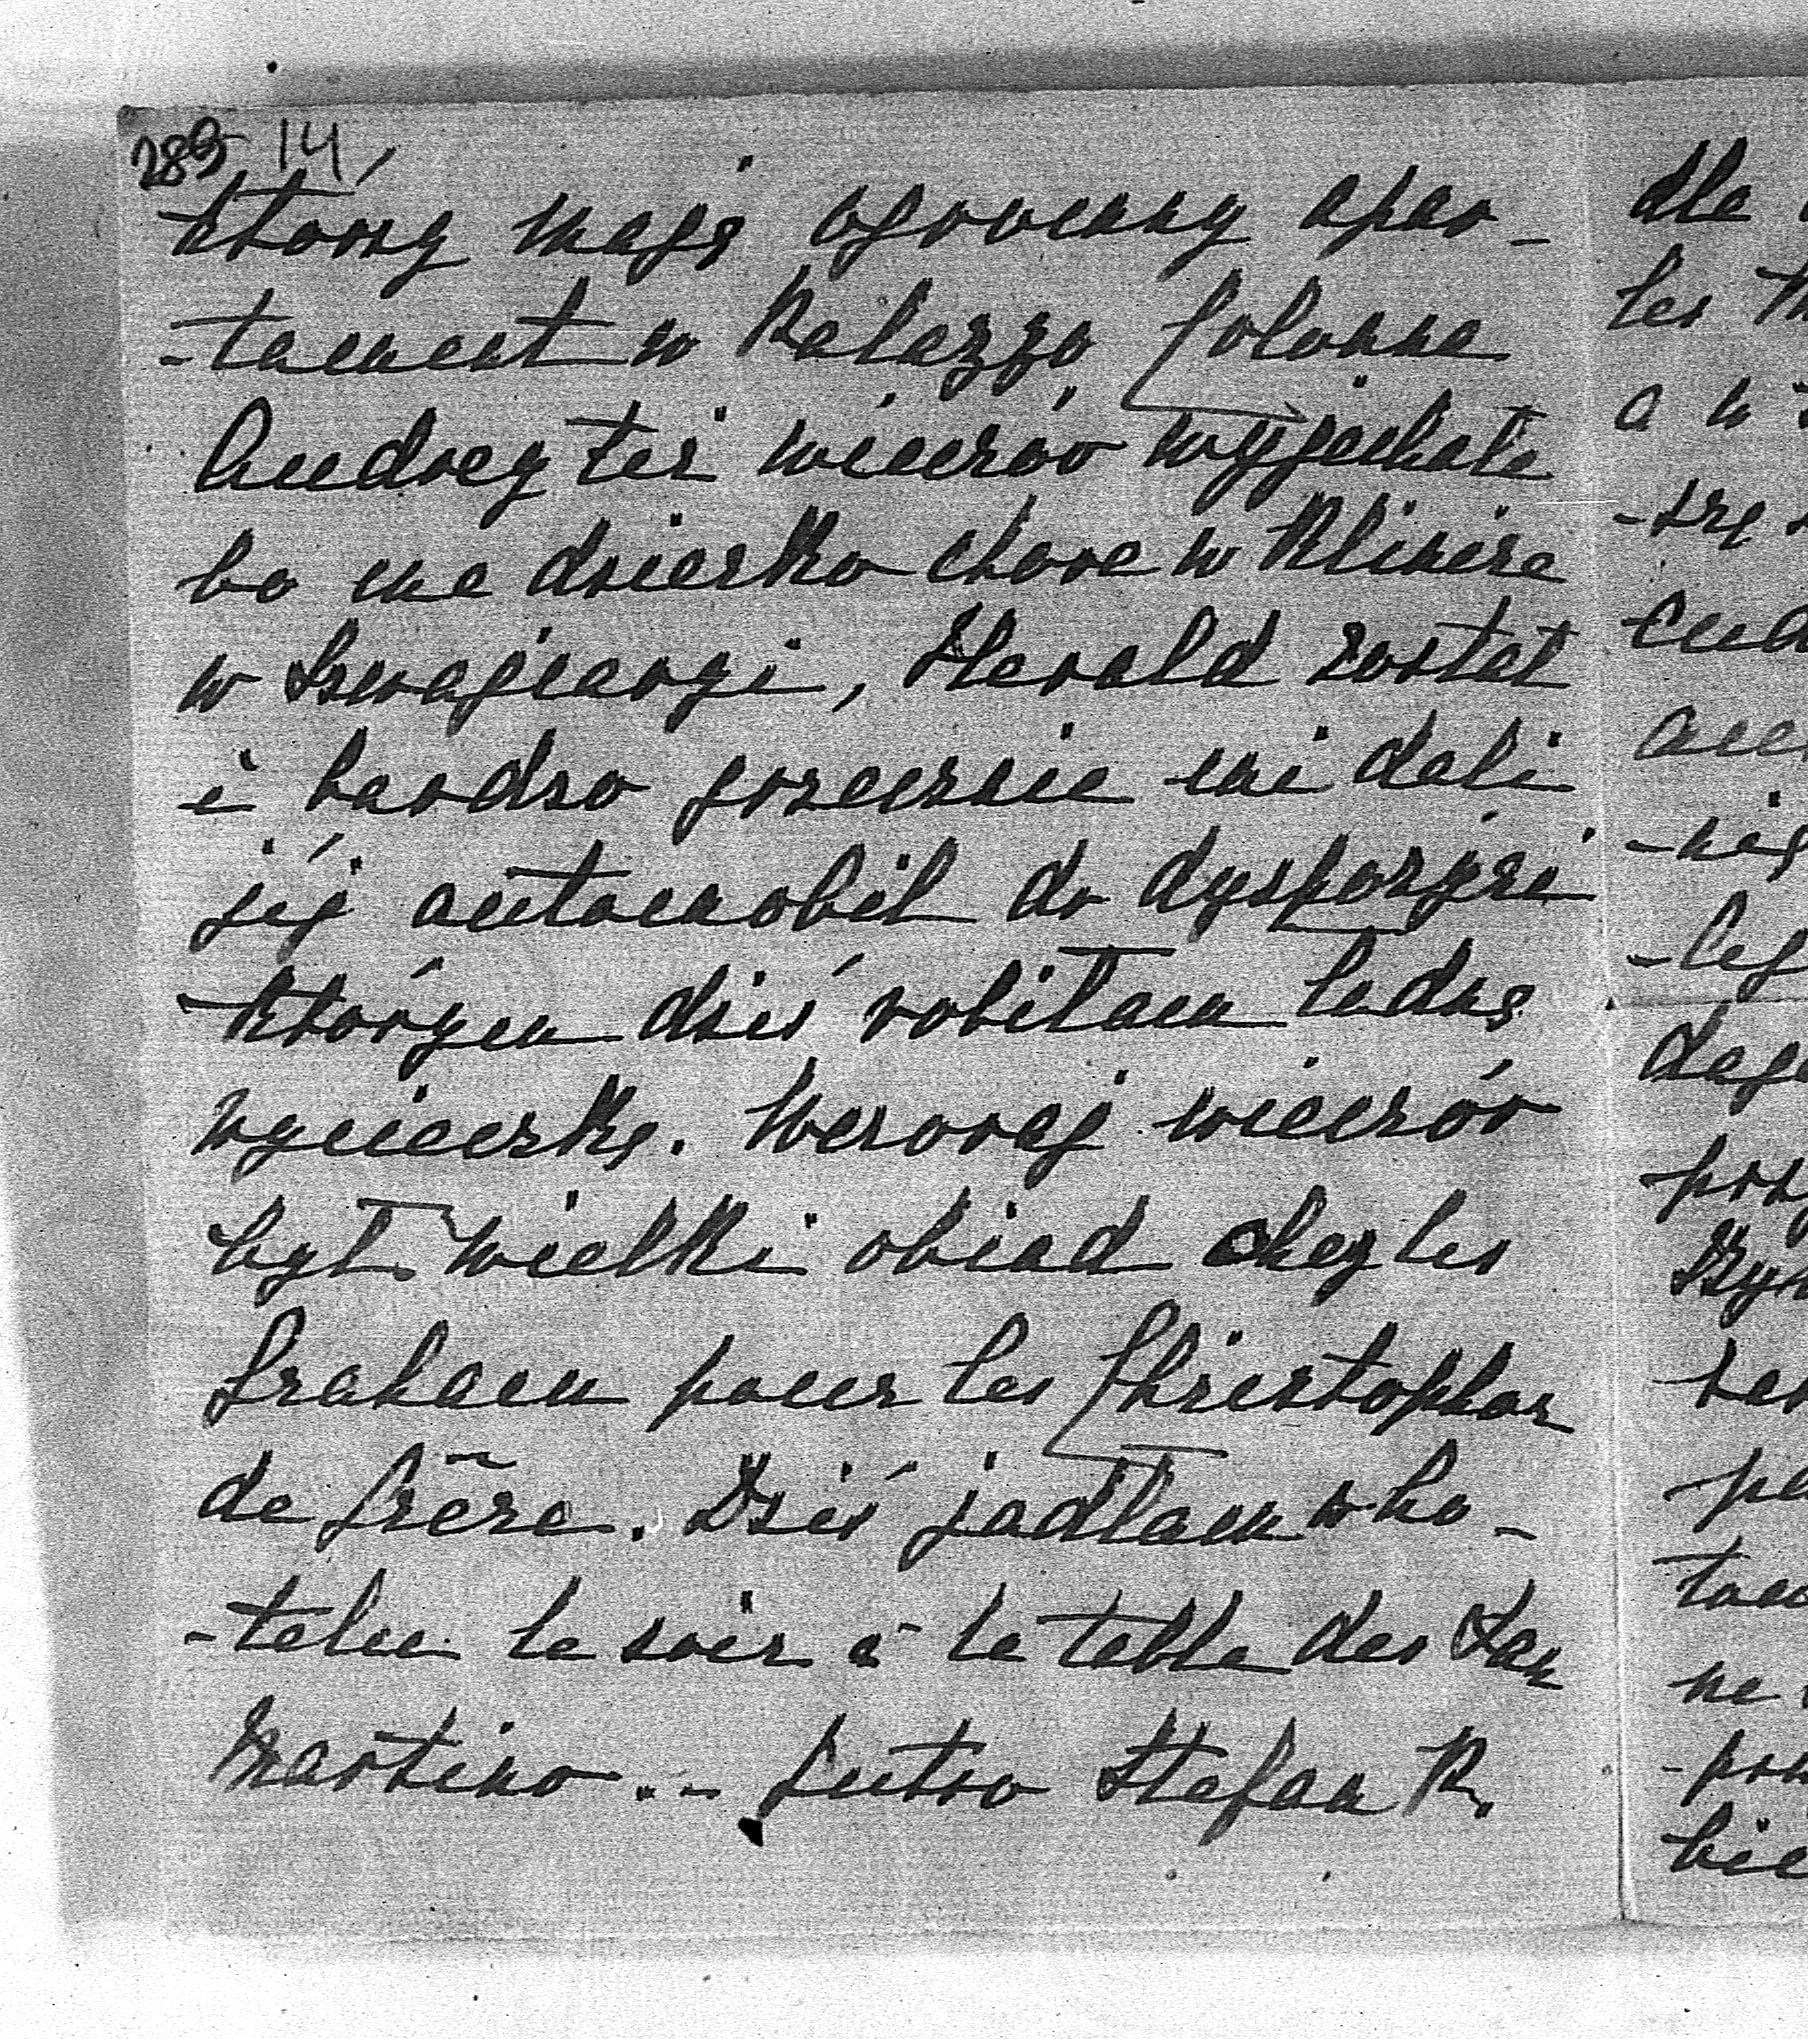 289 14
którzy mają ogromny apar-
-tament w Palazzo Colonna
Audrey też wieczór wyjechała
bo ma dziecko chore w klinice
w Szwajcaryi, Herald został
i bardzo grzecznie mi dali
jéj automobil do dyspozycyi
którym dziś robiłam ładną
wycieczkę. Wczoraj wieczór
był wielki obiad chez les
Graham pour les Christophor
de Grèce. Dziś jadłam w ho-
-telu le soir à la table des San
Martino.- Jutro Stefan R.
dla
les
a w
-trę
cud
-leg